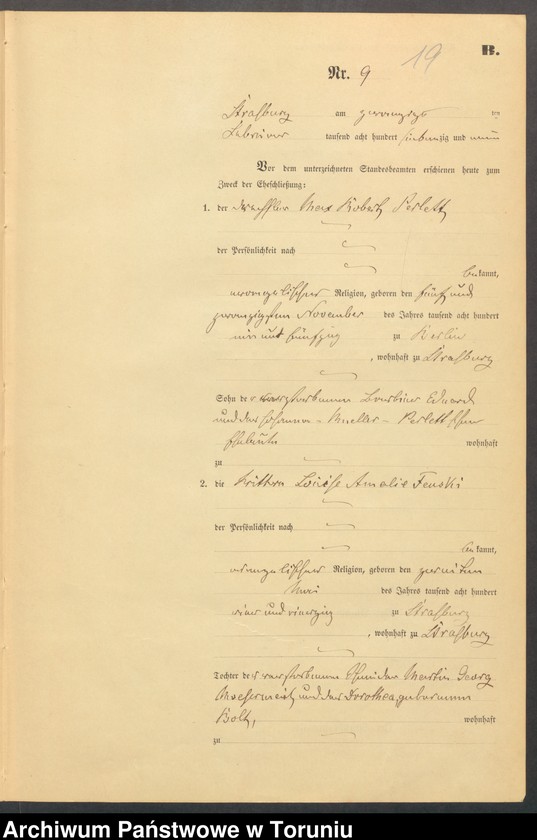 B.
19
Nr. 9
Straßburg am zwanzigs ten
Februar tausend acht hundert siebenzig und neun
Vor dem unterzeichneten Standesbeamten erschienen heute zum
Zweck der Eheschließung:
1. der Max Robert Perlett
der Persönlichkeit nach
bekannt,
evangelischer Religion, geboren den fünf und
zwanzigsten November des Jahres tausend acht hundert
und fünfzig zu Berlin
, wohnhaft zu Straßburg
Sohn des verstorbenen Eduard
und der Johanna - Mueller - Perlett schen
Eheleute wohnhaft
zu
2. die Wittwe Louise Amalie Fenski
der Persönlichkeit nach
bekannt,
evangelischer Religion, geboren den zweiten
Mai des Jahres tausend acht hundert
und vierzig zu Straßburg
, wohnhaft zu Straßburg
Tochter des verstorbenen Martin Georg
und der Dorothea, geborenen
wohnhaft
zu
Archiwum Państwowe w Toruniu